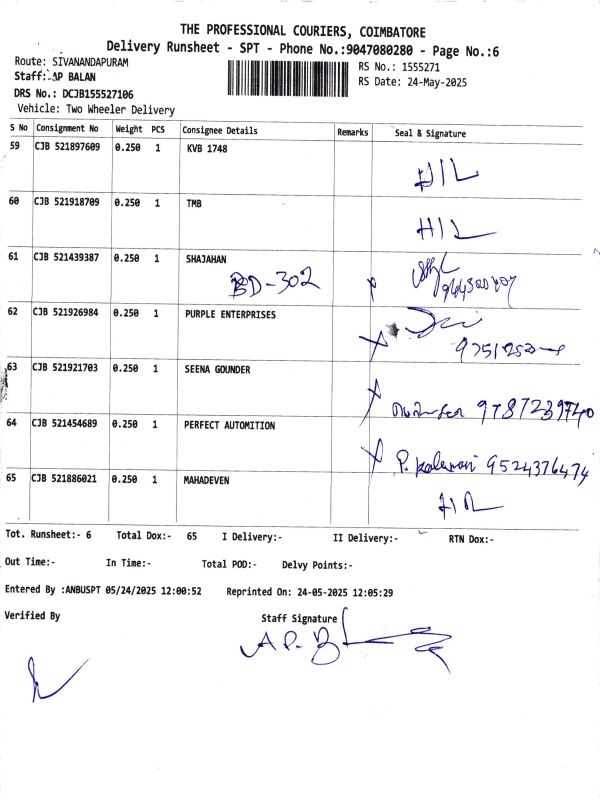 THE PROFESSIONAL COURIERS, COIMBATORE
Delivery Runsheet - SPT - Phone No.:9047080280 - Page No.:6
Route: SIVANANDAPURAM
RS No.: 1555271
Staff: AP BALAN
RS Date: 24-May-2025
DRS No.: DCJB155527106
Vehicle: Two Wheeler Delivery
S No Consignment No Weight PCS Consignee Details Remarks Seal & Signature
59 CJB 521897609 0.250 1 KVB 1748
60 CJB 521918709 0.250 1 TMB
61 CJB 521439387 0.250 1 SHAJAHAN
BD-302
62 CJB 521926984 0.250 1 PURPLE ENTERPRISES
63 CJB 521921703 0.250 1 SEENA GOUNDER
9787239740
64 CJB 521454689 0.250 1 PERFECT AUTOMITION
9524376474
65 CJB 521886021 0.250 1 MAHADEVEN
Tot. Runsheet:- 6 Total Dox:- 65 I Delivery:- II Delivery:- RTN Dox:-
Out Time:- In Time:- Total POD:- Delvy Points:-
Entered By :ANBUSPT 05/24/2025 12:00:52 Reprinted On: 24-05-2025 12:05:29
Verified By Staff Signature